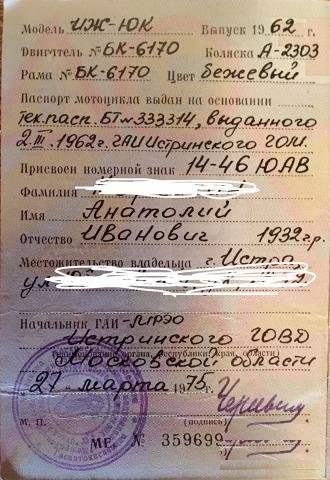 Модель ИЖ-ЮК Выпуск 1962 г.
Двигатель № БК-6170 Коляска А-2303
Рама № БК-6170 Цвет бежевый
Паспорт мотоцикла выдан на основании
Тех.пасп. БТ № 333314, выданного
2.III.1962г. ГАИ Истринского ГОМ.
Присвоен номерной знак 14-46 ЮАВ
Фамилия
Имя Анатолий
Отчество Иванович 1932гр.
Местожительство владельца г. Истра,
ул.
Начальник ГАИ-МРЭО
Истринского ГОВД
(наименование органа, республики, края, области)
Московской области
27 марта 1975 г.
М. П. (подпись)
МЕ № 359699